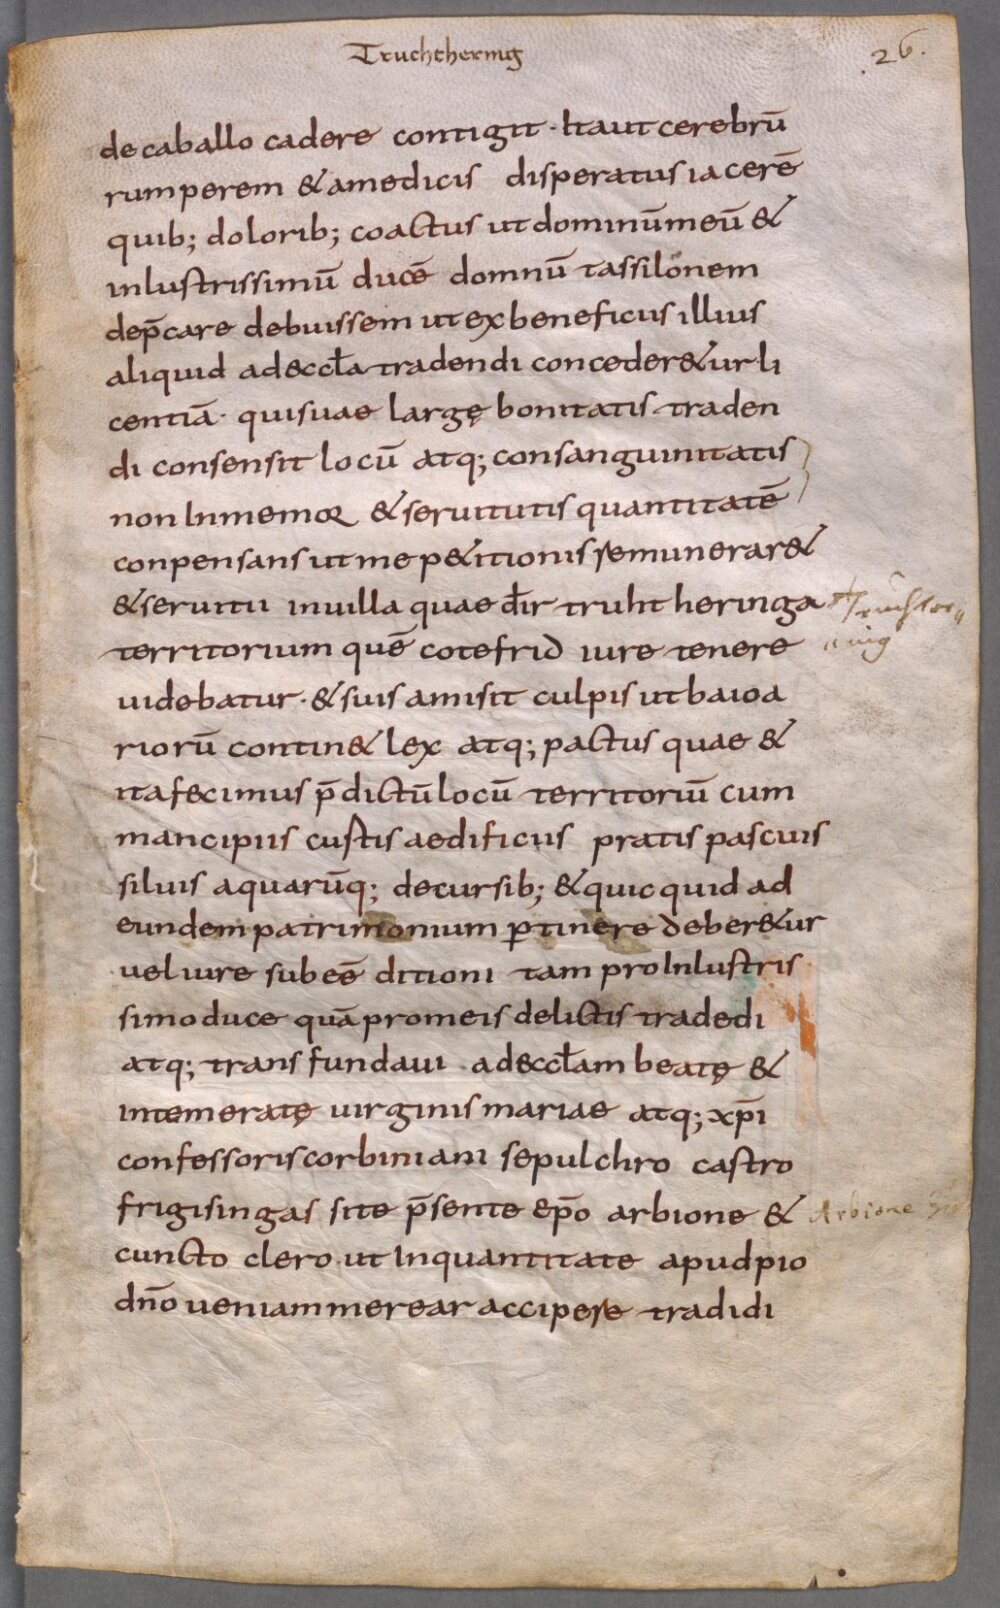 Truchthering
.26.
de caballo cadere contigit · Itaut cerebrū
rumperem & amedicis disperatus iacerē
quib; dolorib; coactus ut dominū meū &
inlustrissimū ducē domnū tassilonem
dep̄care debuissem ut ex beneficiis illius
aliquid ad &ccl̄a tradendi conceder&ur li
centiā · qui suae largę bonitatis traden
di consensit locū atq; consanguinitatis
non Inmemor & seruitutis quantitatē
conpensans ut me p&itionis remunerar&
& seruitii in uilla quae dr̄ truht heringa
territorium quē cotefrid iure tenere
uidebatur · & suis amisit culpis ut baioa
riorū contin& lex atq; pactus quae &
ita fecimus p̄dictū locū territoriū cum
mancipiis custis aedificiis pratis pascuis
siluis aquarūq; decursib; & quicquid ad
eundem patrimonium ꝑtinere deber&ur
uel iure subeē ditioni tam pro Inlustris
simo duce quā pro meis delictis tradedi
atq; transfundaui ad &ccl̄am beatę &
intemeratę uirginis mariae atq; xp̄i
confessoris corbiniani sepulchro castro
frigisingas site p̄sente ep̄o arbione &
cuncto clero ut In quantitate apud pio
dn̄o ueniam merear accipere tradidi
Arbione